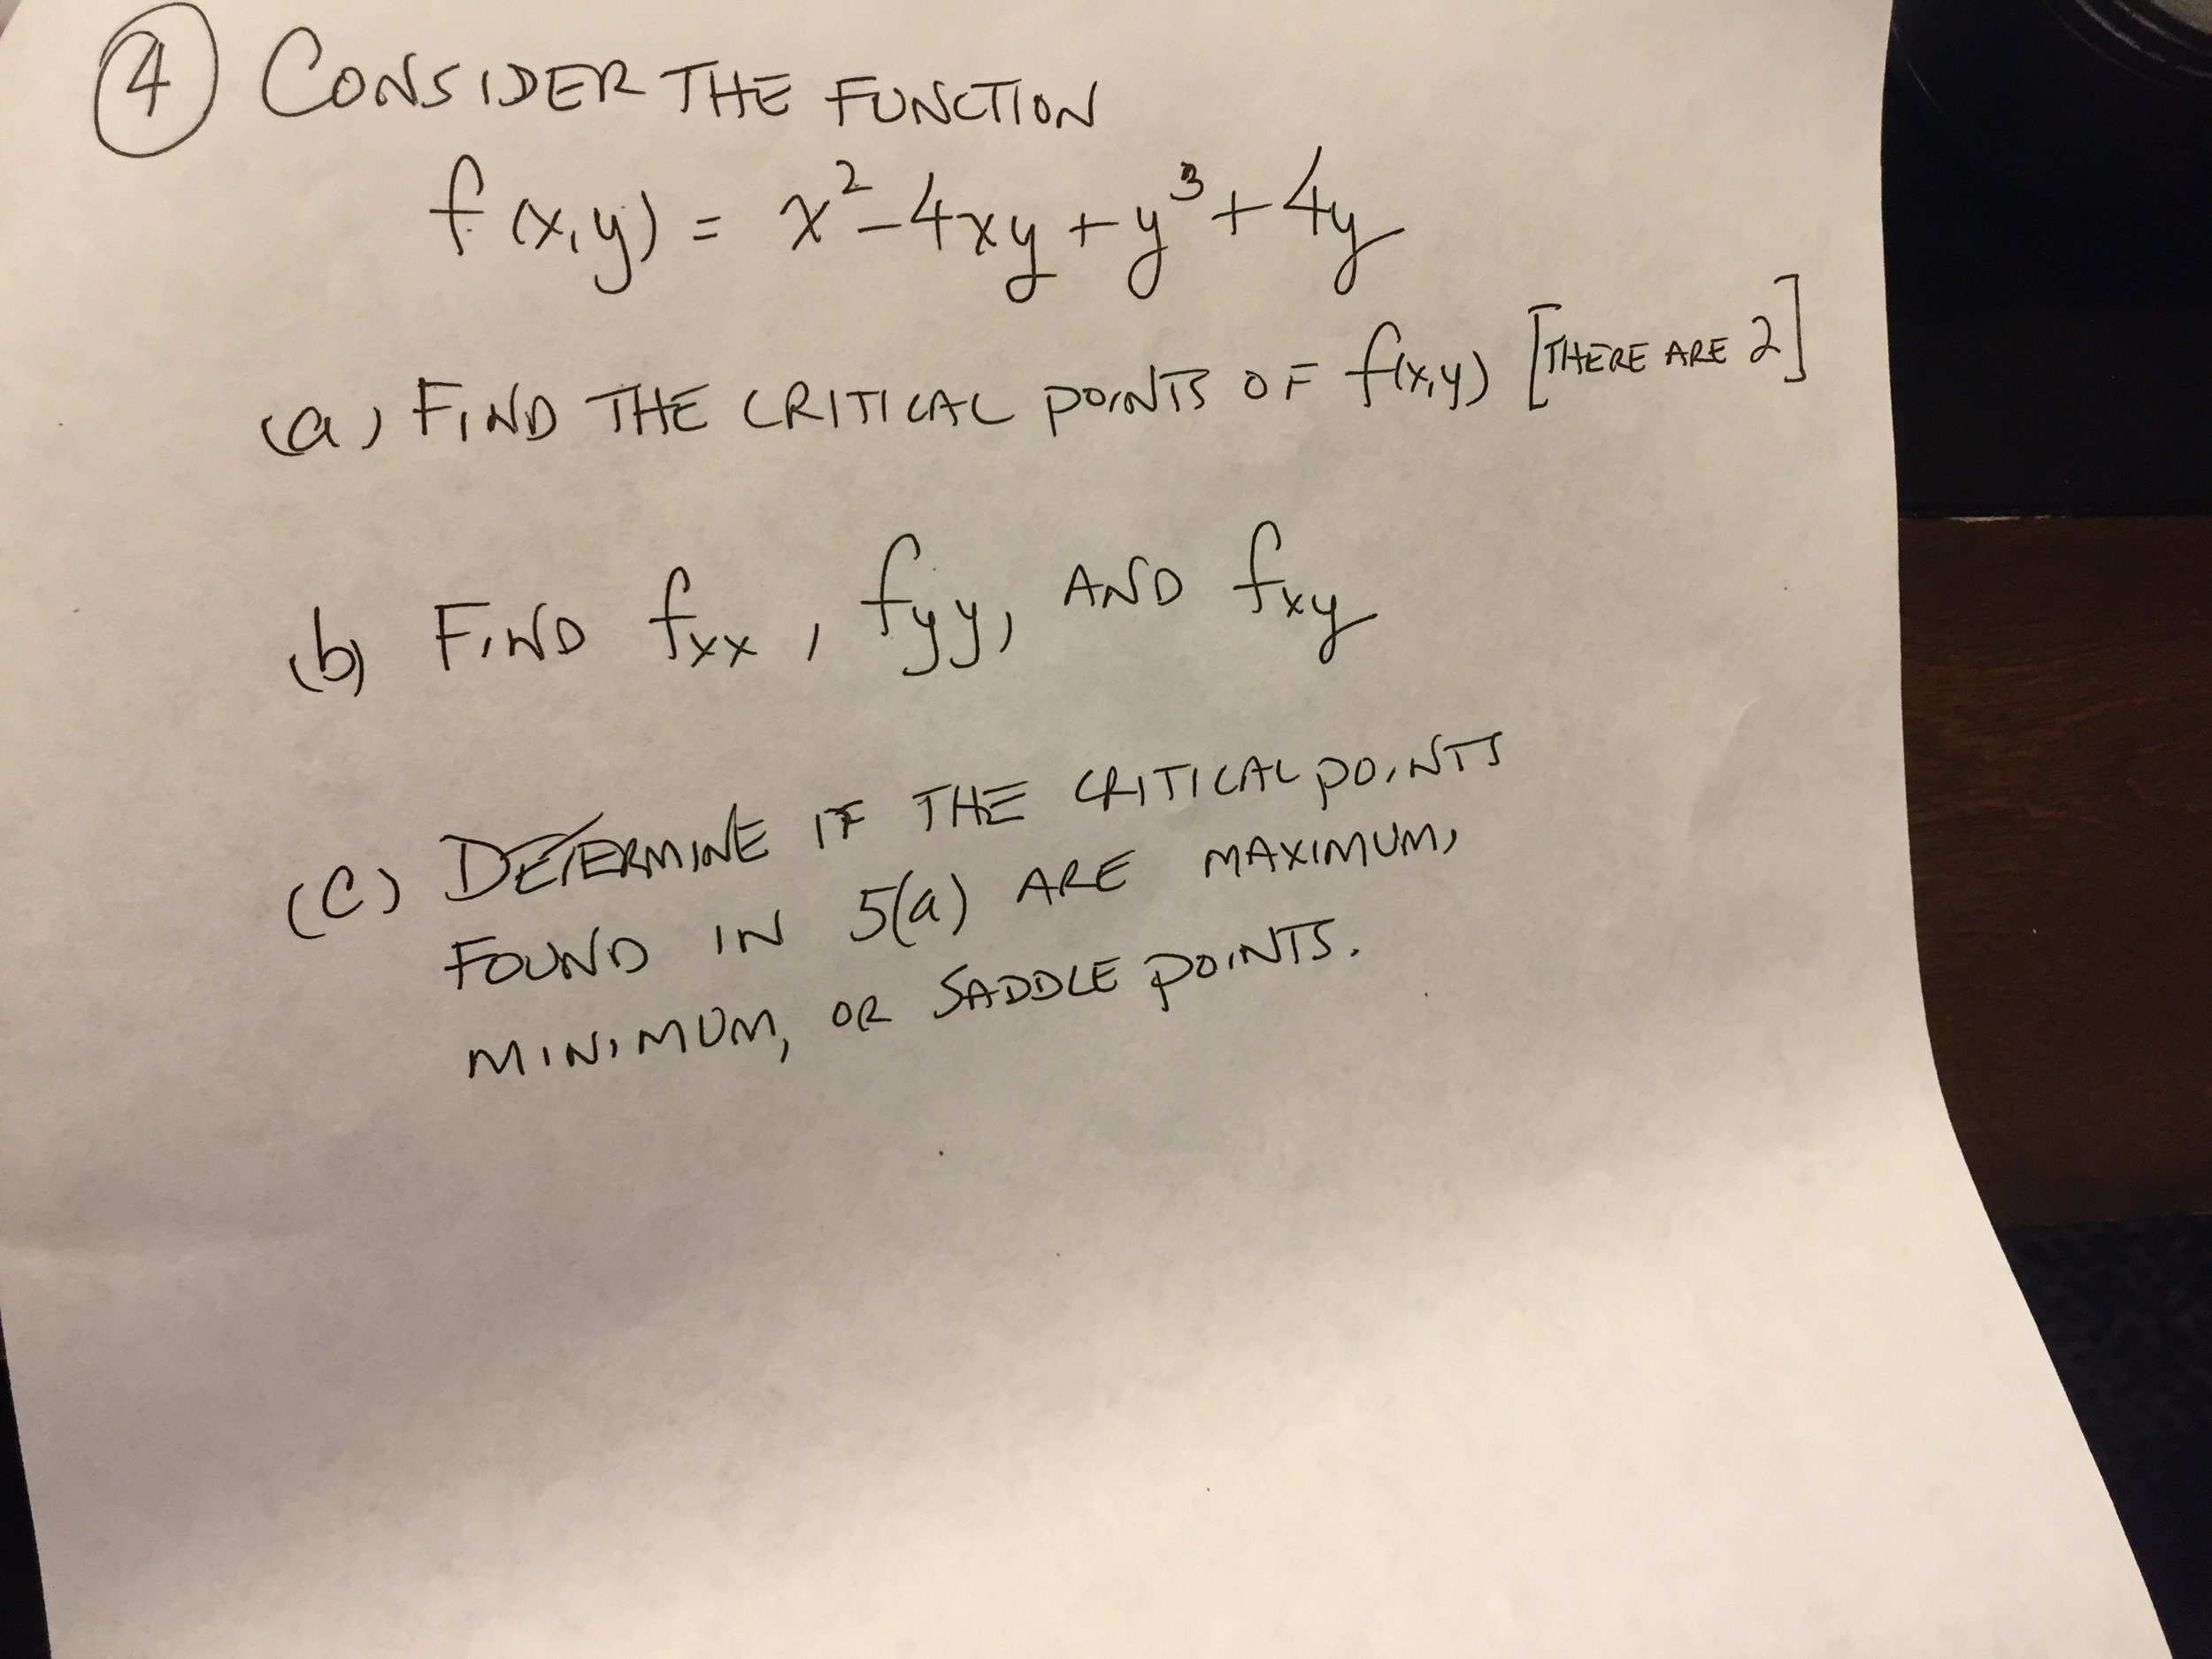 ④ CONSIDER THE FUNCTION
f(x,y) = x²-4xy+y³+4y
(a) FIND THE CRITICAL POINTS OF f(x,y) [THERE ARE 2]
(b) FIND fxx, fyy, AND fxy
(c) DETERMINE IF THE CRITICAL POINTS
FOUND IN 5(a) ARE MAXIMUM,
MINIMUM, OR SADDLE POINTS.